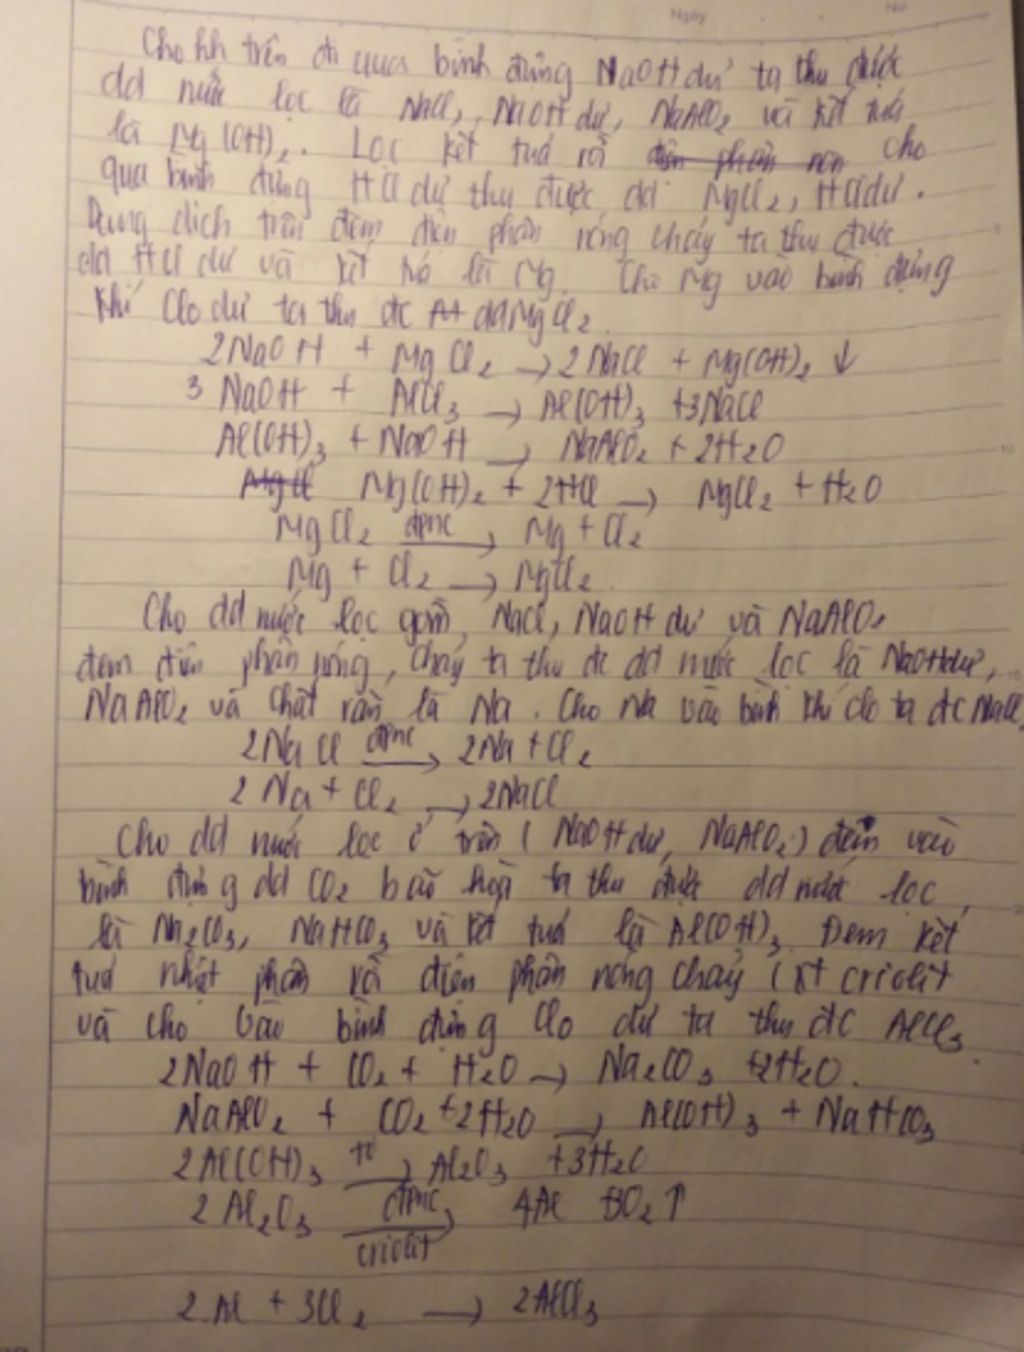 Ngày No
Cho hh trên đi qua bình đựng NaOH dư ta thu được
dd nước lọc là NaCl, NaOH dư, NaAlO₂ và kết tủa
là Mg(OH)₂. Lọc kết tuả rồi điện phân nón cho
qua bình đựng HCl dư thu được dd MgCl₂, HCl dư.
Dung dịch trên đem điện phân nóng chảy ta thu được
dd HCl dư và kết tủa là Mg. Cho Mg vào bình đựng
khí Clo dư ta thu đc dd MgCl₂.
2NaOH + MgCl₂ → 2NaCl + Mg(OH)₂ ↓
3 NaOH + AlCl₃ → Al(OH)₃ +3NaCl
Al(OH)₃ + NaOH → NaAlO₂ + 2H₂O
MgCl Mg(OH)₂ + 2HCl → MgCl₂ + H₂O
MgCl₂ đpnc → Mg + Cl₂
Mg + Cl₂ → MgCl₂.
Cho dd nước lọc gồm, NaCl, NaOH dư và NaAlO₂
đem điện phân nóng, chảy ta thu đc dd nước lọc là NaOH dư,
NaAlO₂ và chất rắn là Na. Cho Na vào bình khí clo ta đc NaCl
2NaCl đpnc → 2Na + Cl₂
2 Na + Cl₂ → 2NaCl
Cho dd nước lọc ở trên (NaOH dư, NaAlO₂) đem vào
bình đựng dd CO₂ bão hoà ta thu được dd nước lọc,
là Na₂CO₃, NaHCO₃ và kết tuả là Al(OH)₃. Đem kết
tuả nhiệt phân rồi điện phân nóng chảy (xt criolit
và cho vào bình đựng Clo dư ta thu đc AlCl₃.
2NaOH + CO₂ + H₂O → Na₂CO₃ +2H₂O.
NaAlO₂ + CO₂ +2H₂O → Al(OH)₃ + NaHCO₃
2Al(OH)₃ t° → Al₂O₃ +3H₂O
2Al₂O₃ đpnc → 4Al +3O₂ ↑
criolit
2.Al + 3Cl₂ → 2AlCl₃